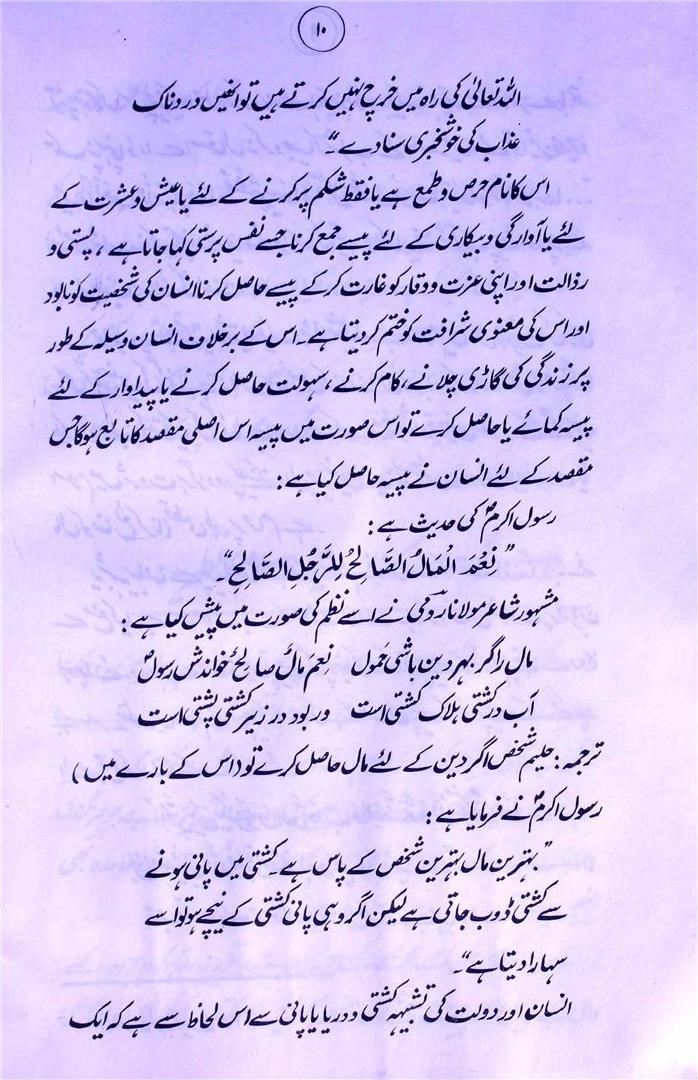 ۱۰
اللہ تعالیٰ کی راہ میں خرچ نہیں کرتے ہیں تو انھیں دردناک
عذاب کی خوشخبری سنا دے"۔
اس کا نام حرص و طمع ہے یا فقط شکم پر کرنے کے لئے یا عیش و عشرت کے
لئے یا آوارگی و بیکاری کے لئے پیسے جمع کرنا جسے نفس پرستی کہا جاتا ہے، پستی و
رذالت اور اپنی عزت و وقار کو غارت کر کے پیسے حاصل کرنا انسان کی شخصیت کو نابود
اور اس کی معنوی شرافت کو ختم کر دیتا ہے۔ اس کے برخلاف انسان وسیلہ کے طور
پر زندگی کی گاڑی چلانے، کام کرنے، سہولت حاصل کرنے یا پیداوار کے لئے
پیسہ کمائے یا حاصل کرے تو اس صورت میں پیسہ اس اصلی مقصد کا تابع ہوگا جس
مقصد کے لئے انسان نے پیسہ حاصل کیا ہے:
رسول اکرمؐ کی حدیث ہے:
"نِعْمَ الْمَالُ الصَّالِحُ لِلرَّجُلِ الصَّالِحِ"۔
مشہور شاعر مولانا رومی نے اسے نظم کی صورت میں پیش کیا ہے:
مال را گر بہر دین باشی حمول نِعمَ مالٌ صالحٌ خواندش رسولؐ
آب در کشتی ہلاک کشتی است ور بود در زیر کشتی پشتی است
ترجمہ: حلیم شخص اگر دین کے لئے مال حاصل کرے تو (اس کے بارے میں)
رسول اکرمؐ نے فرمایا ہے:
"بہترین مال بہترین شخص کے پاس ہے۔ کشتی میں پانی ہونے
سے کشتی ڈوب جاتی ہے لیکن اگر وہی پانی کشتی کے نیچے ہو تو اسے
سہارا دیتا ہے"۔
انسان اور دولت کی تشبیہہ کشتی و دریا یا پانی سے اس لحاظ سے ہے کہ ایک